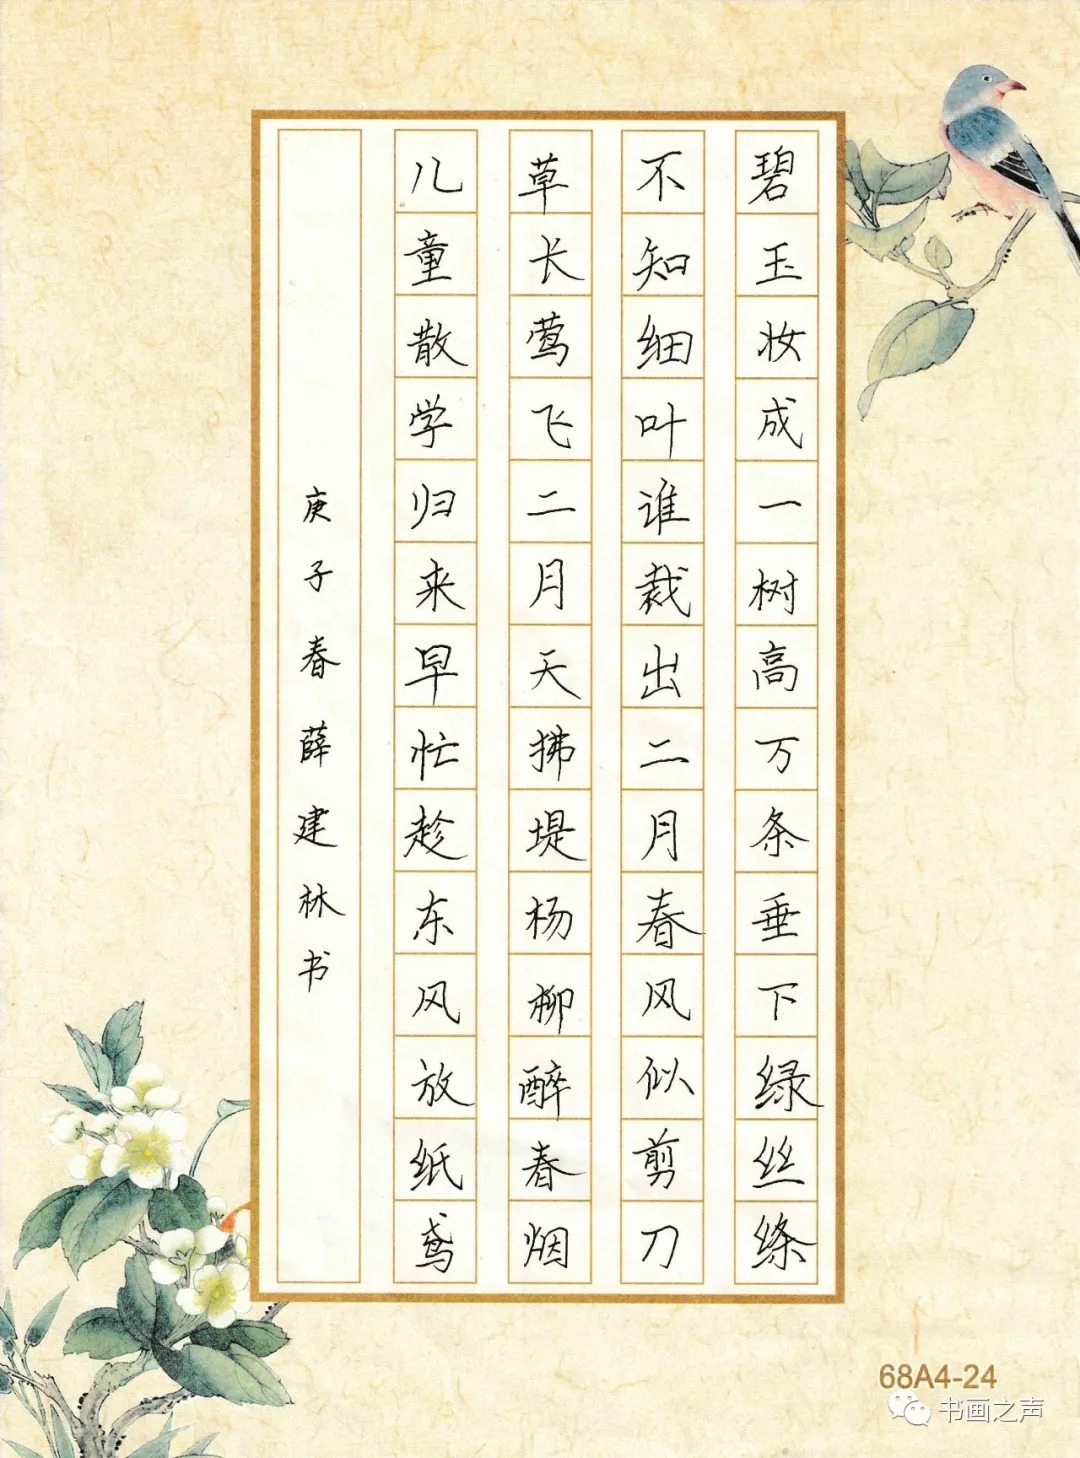 碧玉妆成一树高万条垂下绿丝绦
不知细叶谁裁出二月春风似剪刀
草长莺飞二月天拂堤杨柳醉春烟
儿童散学归来早忙趁东风放纸鸢
庚子春薛建林书
68A4-24
书画之声